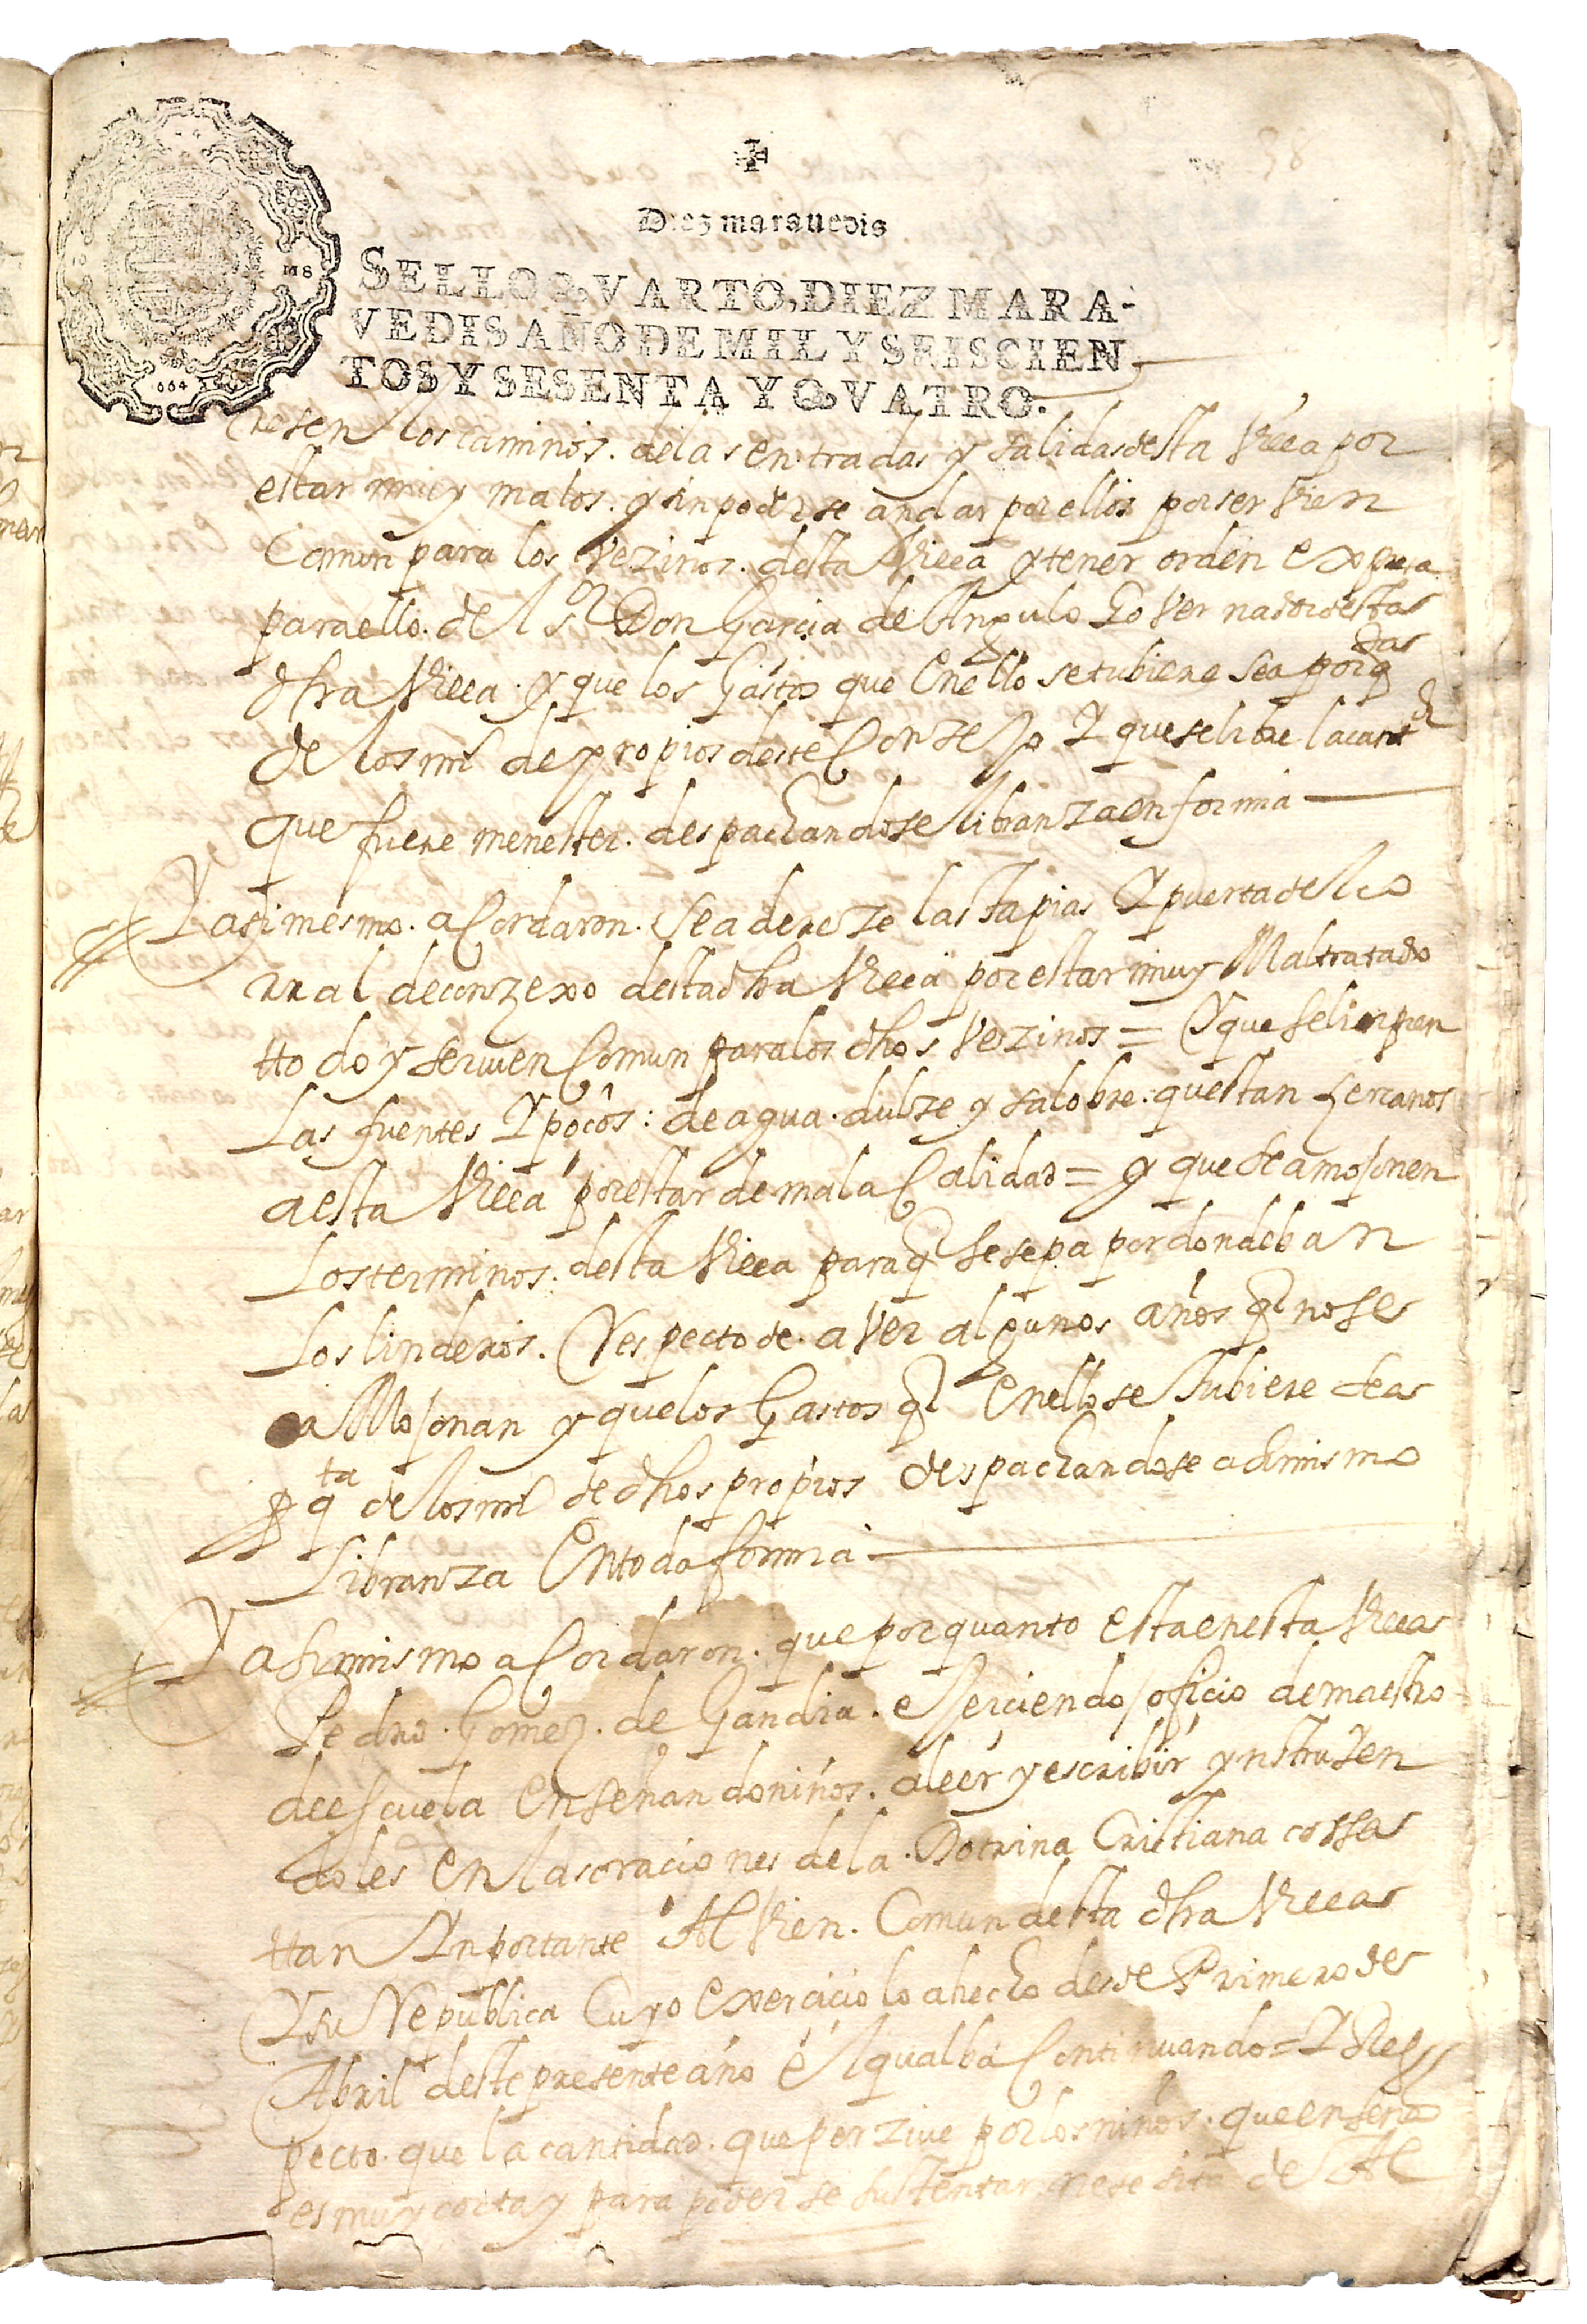 Diez marauedis
SELLO QVARTO, DIEZ MARA-
VEDIS AÑO DE MIL Y SEISCIEN
TOS Y SESENTA Y QVATRO.
resen los caminos. de las entradas y salidas desta Villa por
estar muy malos. y sin poderse andar por ellos por ser vien
Comun para los Vezinos. desta Villa y tener orden expresa
para ello. del Sr Don Garcia de Angulo Governador desta
dha Villa. y que los Gastos que en ello se tubiere sea por qta
de los mrs de propios deste Conzejo Y que se libre la cantd
que fuere menester. despachandose libranza en forma
Y asi mesmo. acordaron. se adereze las tapias Y puerta del co
rral de conzexo desta dha Villa por estar muy Maltratado
ttodo y ser vien Comun para los dhos Vezinos = Y que se linpien
Las fuentes Y poços: de agua. dulze y salobre. questan zercanos
a esta Villa por estar de mala Calidad = y que se amojonen
Los terminos. desta Villa para q se sepa por donde ban
Los linderos. Respecto de. aver algunos años q no se
aMojonan y que los Gastos q en ello se tubiere sea
Por qta de los mrs de dhos propios despachandose asimismo
Libranza En toda forma
Y asimismo acordaron. que por quanto esta en esta Villa
Pedro. Gomez. de Gandia. exerciendo oficio de maestro
de escuela Enseñando niños. a leer y escribir ynstruyen
doles En las oraciones de la. Dotrina Cristiana cossa
ttan Ynportante Al Vien. Comun desta dha Villa
Y su Republica Cuyo Exercicio lo a hecho desde Primero de
Abril deste presente año El qual ba Continuando = Y Res
pecto. que la cantidad. que perzive por los niños. que enseña
es muy corta y para poder se sustentar nesesita de Al